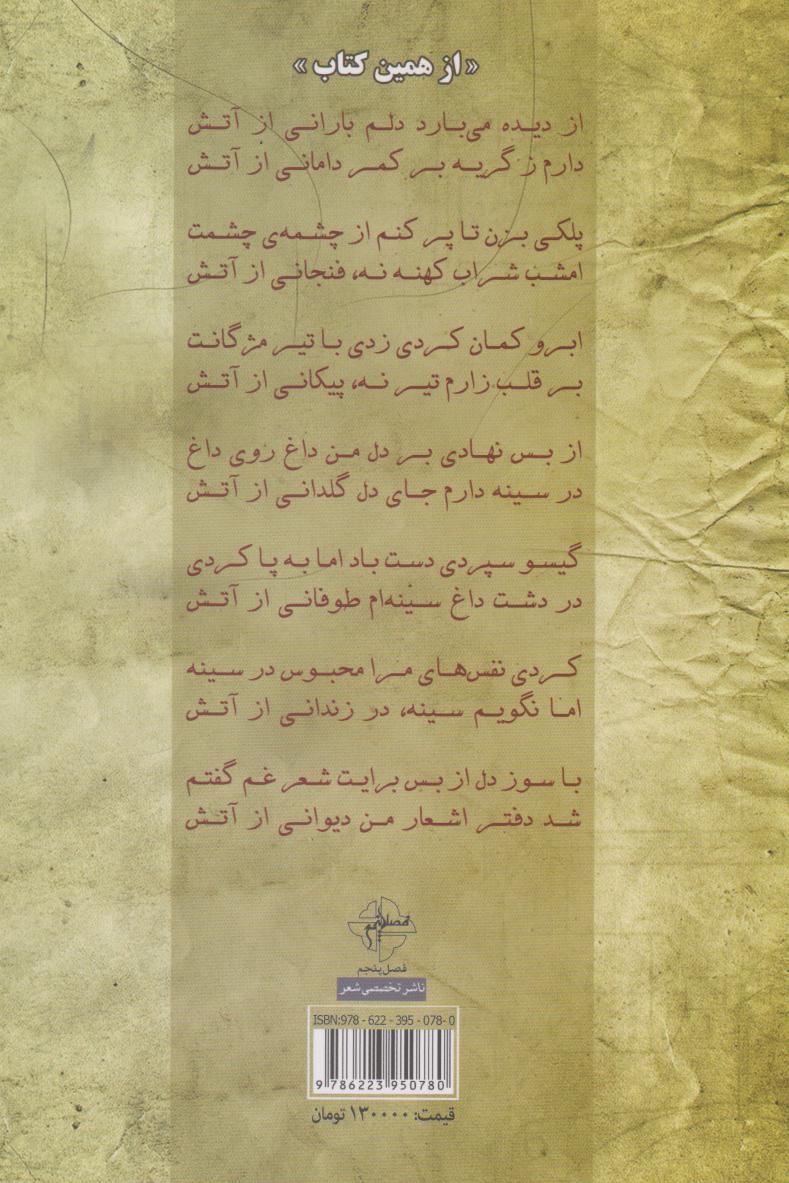 « از همین کتاب »
از دیده می‌بارد دلم بارانی از آتش
دارم ز گریه بر کمر دامانی از آتش
پلکی بزن تا پر کنم از چشمه‌ی چشمت
امشب شراب کهنه نه، فنجانی از آتش
ابرو کمان کردی زدی با تیر مژگانت
بر قلب زارم تیر نه، پیکانی از آتش
از بس نهادی بر دل من داغ روی داغ
در سینه دارم جای دل گلدانی از آتش
گیسو سپردی دست باد اما به پا کردی
در دشت داغ سینه‌ام طوفانی از آتش
کردی نفس‌های مرا محبوس در سینه
اما نگویم سینه، در زندانی از آتش
با سوز دل از بس برایت شعر غم گفتم
شد دفتر اشعار من دیوانی از آتش
فصل پنجم
فصل پنجم
ناشر تخصصی شعر
ISBN:978 - 622 - 395 - 078- 0
9 786223 950780
قیمت: ۱۳۰۰۰۰ تومان